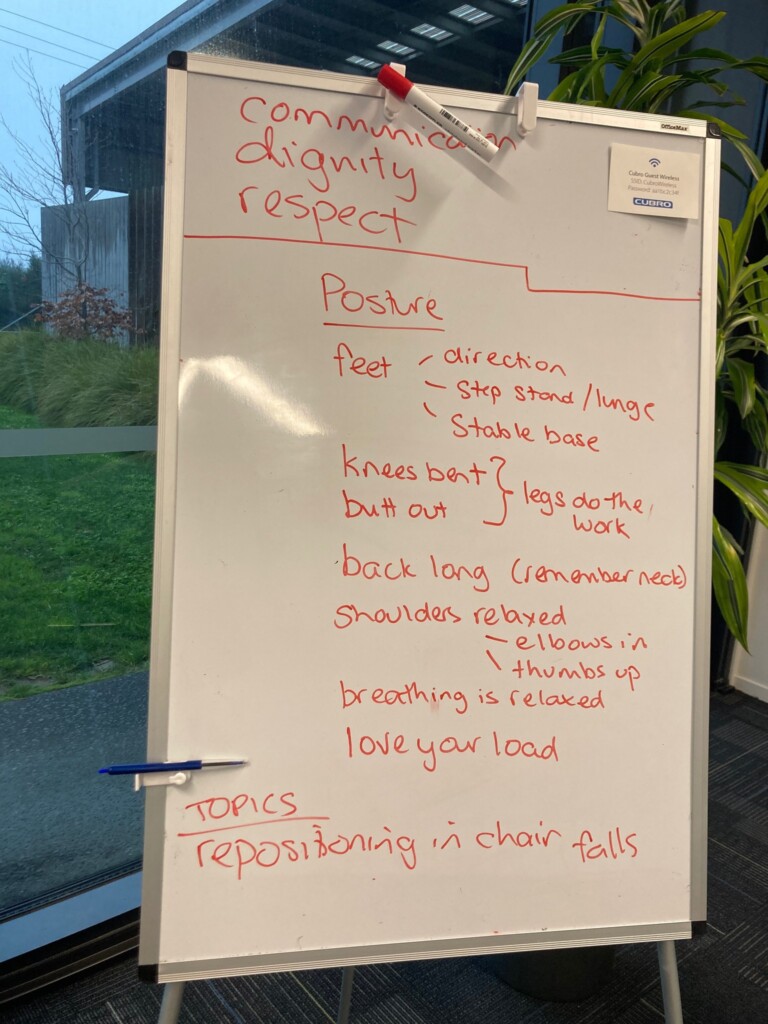 communication
dignity
respect
OfficeMax
Cubro Guest Wireless
SSID: CubroWireless
CUBRO
Posture
feet - direction
- step stand / lunge
- stable base
knees bent
butt out } legs do the
work
back long (remember neck)
shoulders relaxed
- elbows in
- thumbs up
breathing is relaxed
love your load
TOPICS
repositioning in chair falls